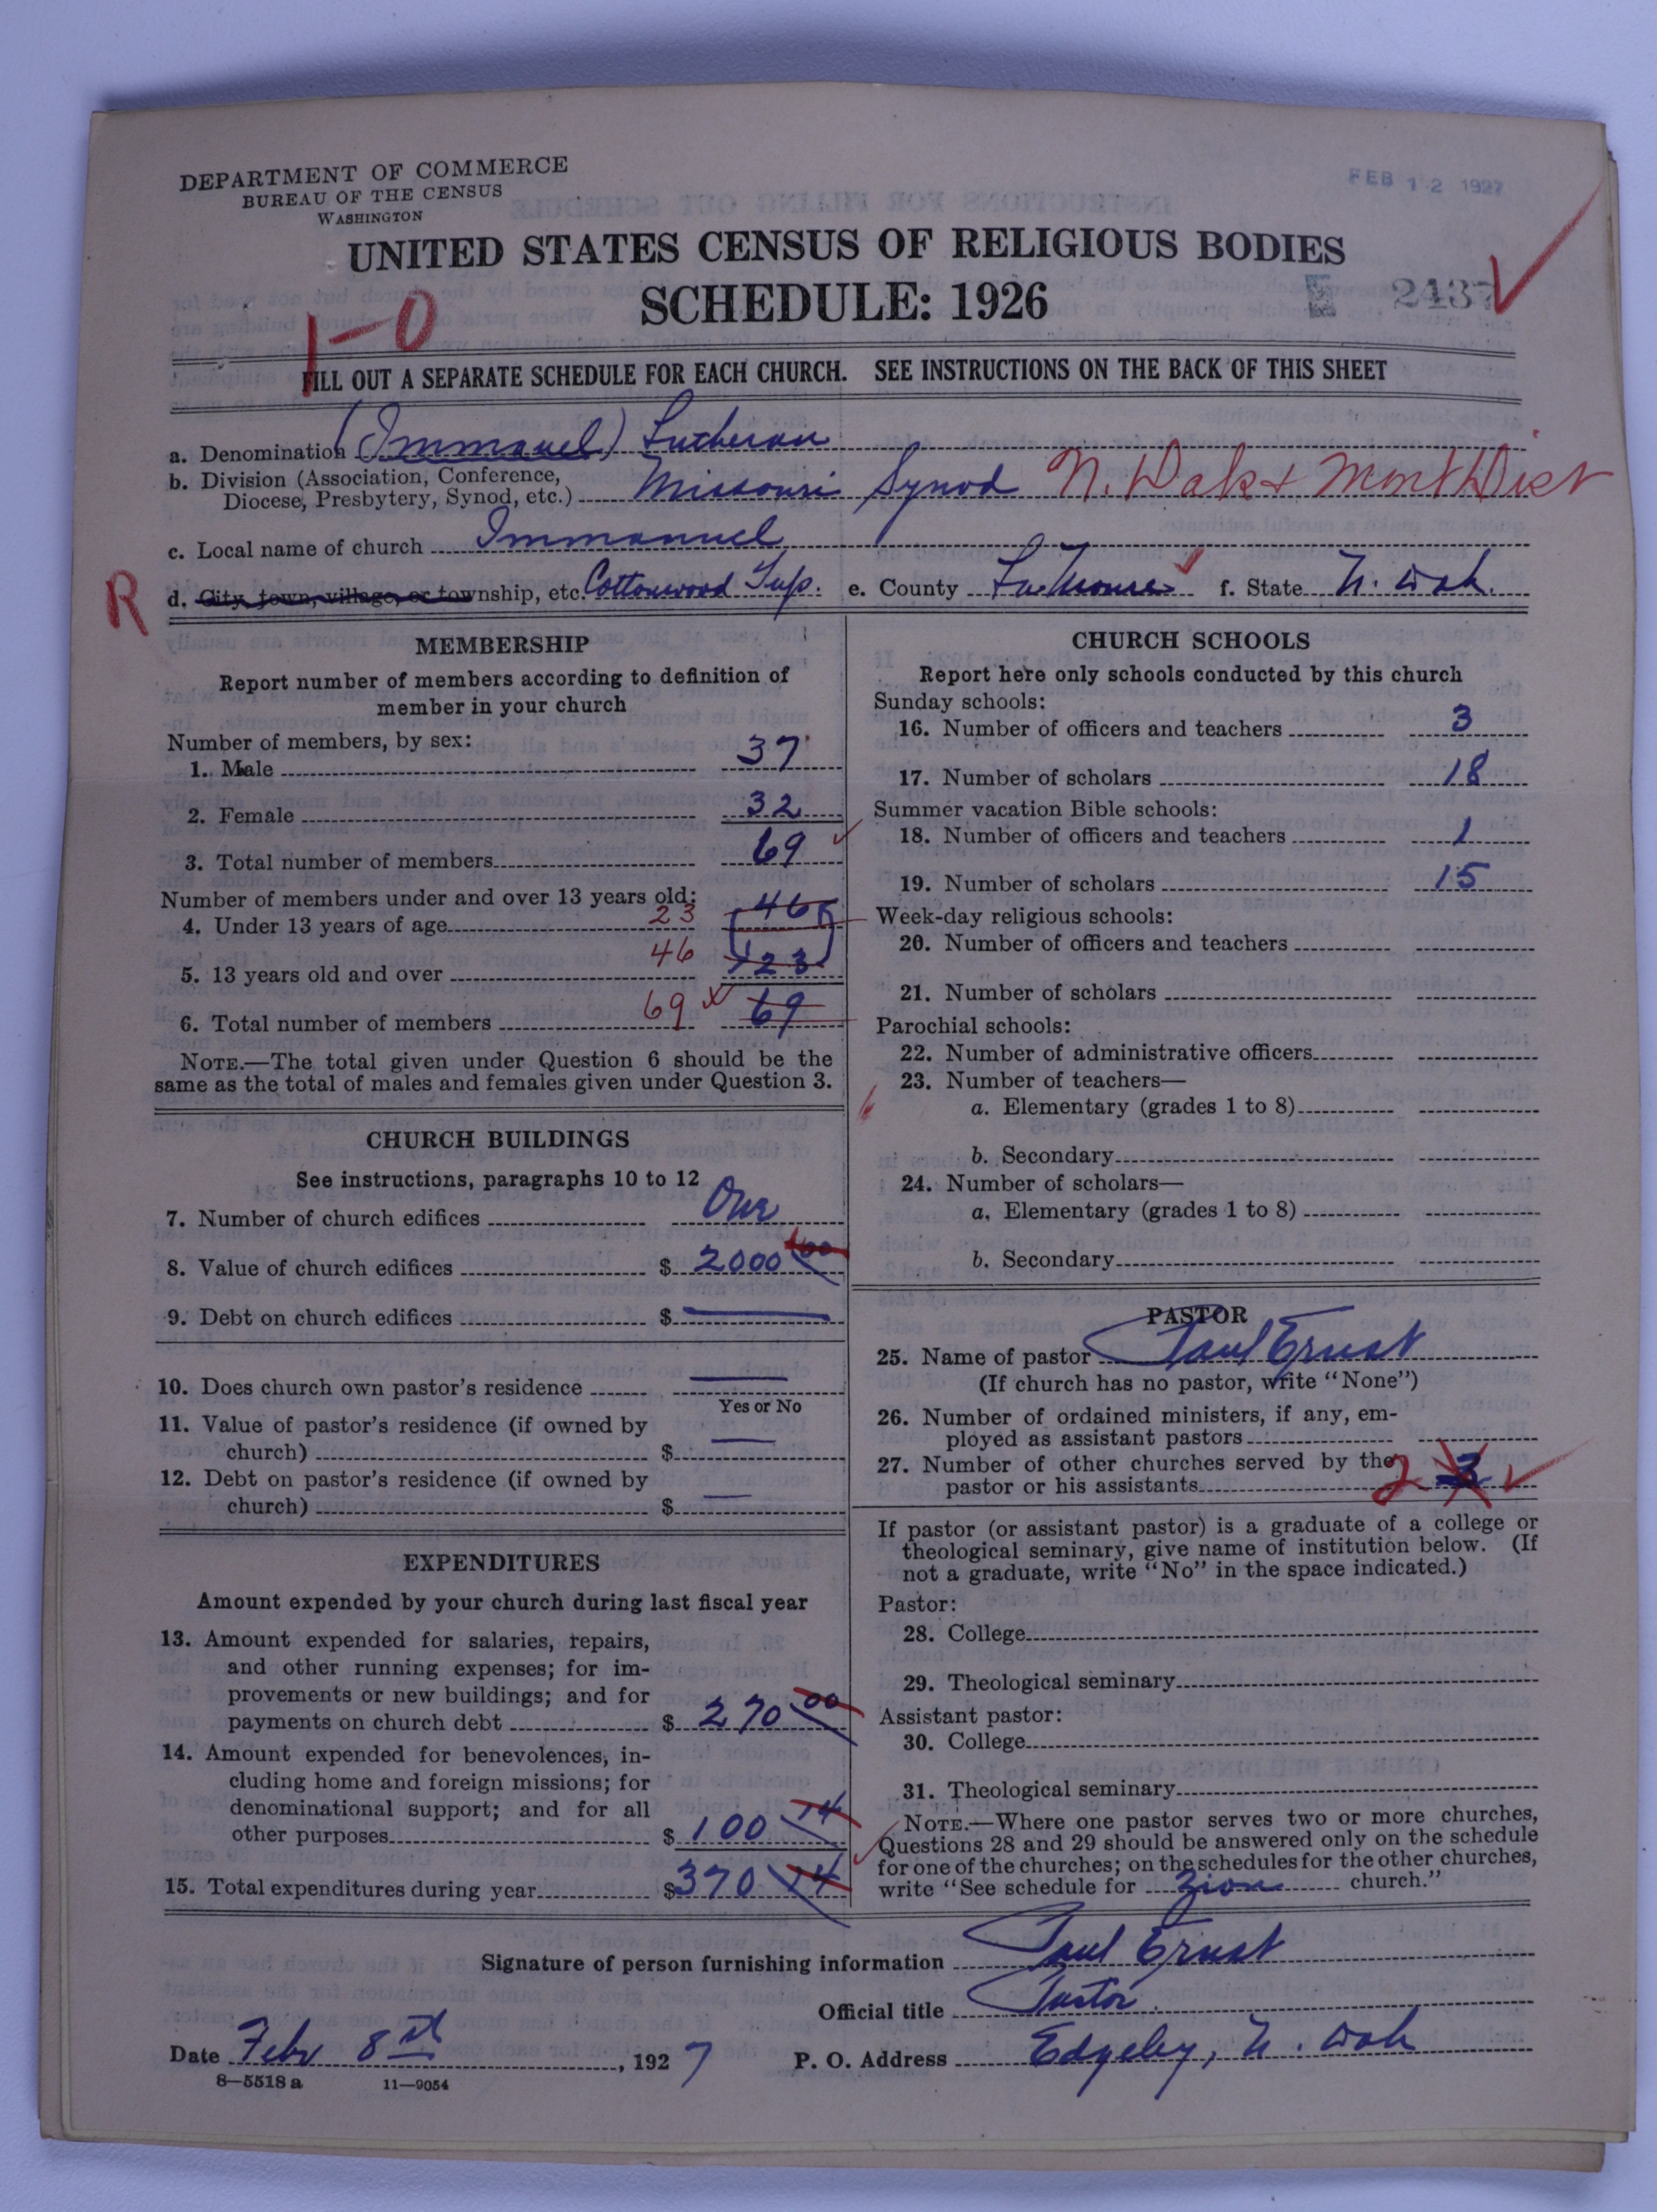 DEPARTMENT OF COMMERCE
BUREAU OF THE CENSUS
WASHINGTON
FEB 12 1927
UNITED STATES CENSUS OF RELIGIOUS BODIES
SCHEDULE: 1926
2437
1-0
FILL OUT A SEPARATE SCHEDULE FOR EACH CHURCH. SEE INSTRUCTIONS ON THE BACK OF THIS SHEET
a. Denomination (Immanuel) Lutheran
b. Division (Association, Conference,
Diocese, Presbytery, Synod, etc.) Missouri Synod N. Dak & Mont Dist
c. Local name of church Immanuel
R
d. City, town, village, or township, etc. Cottonwood Twp. e. County LaMoure f. State N. Dak.
MEMBERSHIP
Report number of members according to definition of
member in your church
Number of members, by sex:
1. Male 37
2. Female 32
3. Total number of members 69
Number of members under and over 13 years old:
4. Under 13 years of age 23 46
5. 13 years old and over 46 23
6. Total number of members 69 69
NOTE.—The total given under Question 6 should be the
same as the total of males and females given under Question 3.
CHURCH BUILDINGS
See instructions, paragraphs 10 to 12
7. Number of church edifices One
8. Value of church edifices $ 2000 00
9. Debt on church edifices $ —
10. Does church own pastor's residence —
Yes or No
11. Value of pastor's residence (if owned by
church) $ —
12. Debt on pastor's residence (if owned by
church) $ —
EXPENDITURES
Amount expended by your church during last fiscal year
13. Amount expended for salaries, repairs,
and other running expenses; for im-
provements or new buildings; and for
payments on church debt $ 270 00
14. Amount expended for benevolences, in-
cluding home and foreign missions; for
denominational support; and for all
other purposes $ 100 14
15. Total expenditures during year $ 370 14
CHURCH SCHOOLS
Report here only schools conducted by this church
Sunday schools:
16. Number of officers and teachers 3
17. Number of scholars 18
Summer vacation Bible schools:
18. Number of officers and teachers 1
19. Number of scholars 15
Week-day religious schools:
20. Number of officers and teachers
21. Number of scholars
Parochial schools:
22. Number of administrative officers
23. Number of teachers—
a. Elementary (grades 1 to 8)
b. Secondary
24. Number of scholars—
a. Elementary (grades 1 to 8)
b. Secondary
PASTOR
25. Name of pastor Paul Ernst
(If church has no pastor, write "None")
26. Number of ordained ministers, if any, em-
ployed as assistant pastors
27. Number of other churches served by the
pastor or his assistants 2 3
If pastor (or assistant pastor) is a graduate of a college or
theological seminary, give name of institution below. (If
not a graduate, write "No" in the space indicated.)
Pastor:
28. College
29. Theological seminary
Assistant pastor:
30. College
31. Theological seminary
NOTE.—Where one pastor serves two or more churches,
Questions 28 and 29 should be answered only on the schedule
for one of the churches; on the schedules for the other churches,
write "See schedule for Zion church."
Signature of person furnishing information Paul Ernst
Official title Pastor.
Date Febr 8th, 1927 P. O. Address Edgeley, N. Dak
8—5518 a 11—9054